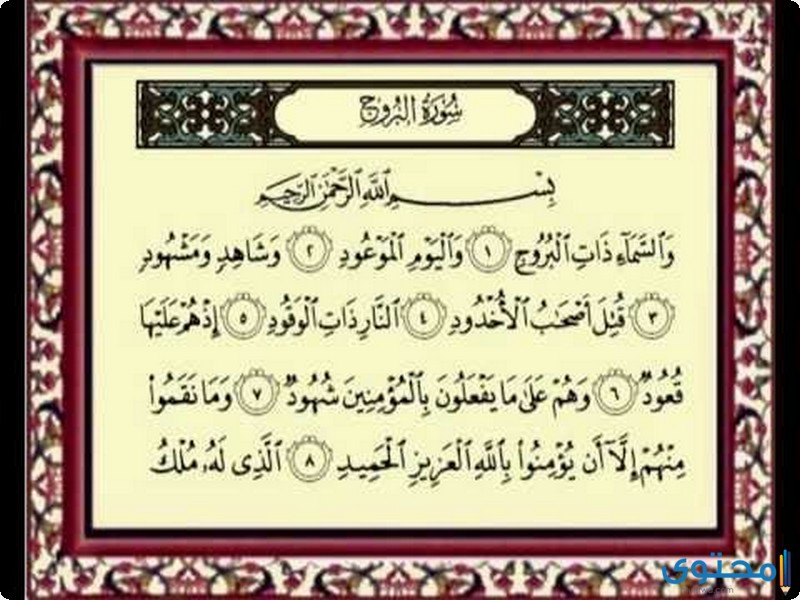 سُورَةُ الْبُرُوجِ
بِسْمِ ٱللَّهِ ٱلرَّحْمَٰنِ ٱلرَّحِيمِ
وَٱلسَّمَآءِ ذَاتِ ٱلْبُرُوجِ ١ وَٱلْيَوْمِ ٱلْمَوْعُودِ ٢ وَشَاهِدٍ وَمَشْهُودٍ
٣ قُتِلَ أَصْحَٰبُ ٱلْأُخْدُودِ ٤ ٱلنَّارِ ذَاتِ ٱلْوَقُودِ ٥ إِذْ هُمْ عَلَيْهَا
قُعُودٌ ٦ وَهُمْ عَلَىٰ مَا يَفْعَلُونَ بِٱلْمُؤْمِنِينَ شُهُودٌ ٧ وَمَا نَقَمُوا۟
مِنْهُمْ إِلَّآ أَن يُؤْمِنُوا۟ بِٱللَّهِ ٱلْعَزِيزِ ٱلْحَمِيدِ ٨ ٱلَّذِى لَهُۥ مُلْكُ
محتوى